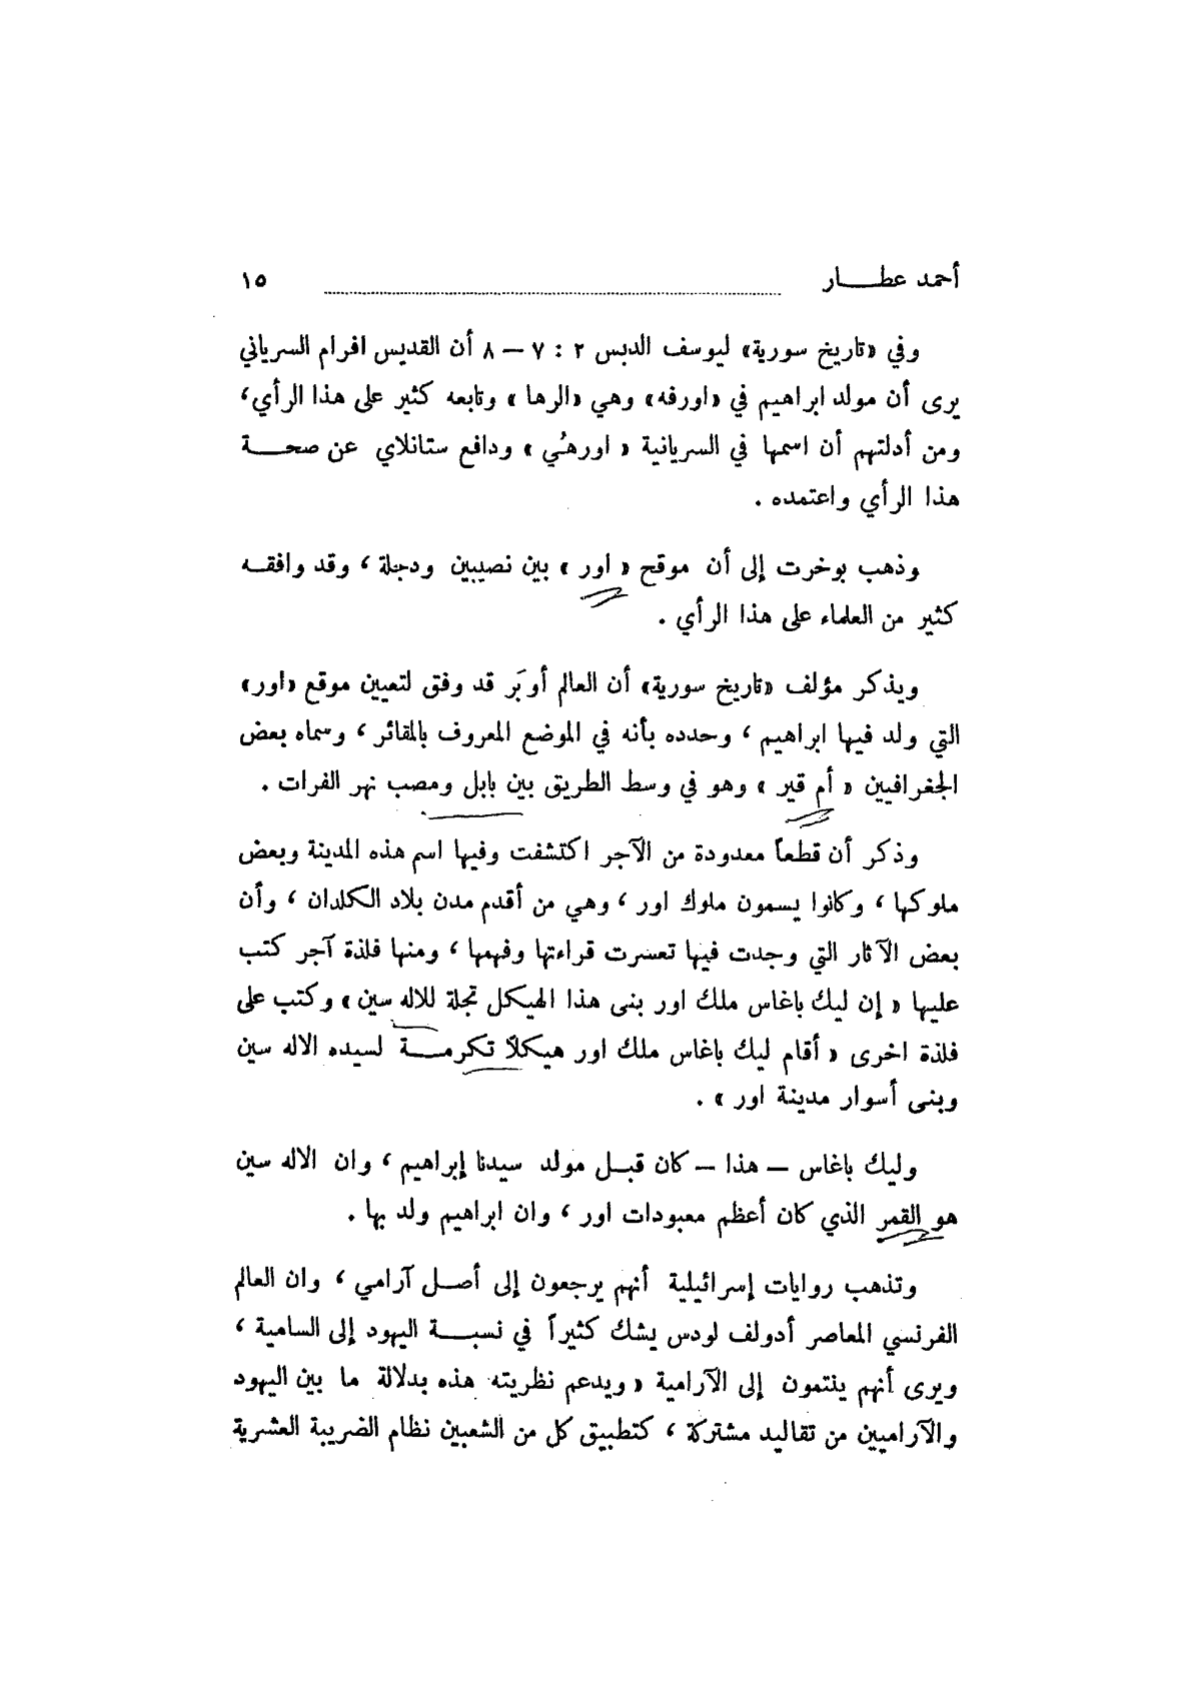 أحمد عطـــار ١٥
وفي «تاريخ سورية» ليوسف الدبس ٢ : ٧ – ٨ أن القديس افرام السرياني
يرى أن مولد ابراهيم في «اورفه» وهي «الرها» وتابعه كثير على هذا الرأي،
ومن أدلتهم أن اسمها في السريانية « اورهُي » ودافع ستانلاي عن صحـــة
هذا الرأي واعتمده .
وذهب بوخرت إلى أن موقح « اور » بين نصيبين ودجلة ، وقد وافقـه
كثير من العلماء على هذا الرأي .
ويذكر مؤلف «تاريخ سورية» أن العالم أوبَر قد وفق لتعيين موقع «اور»
التي ولد فيها ابراهيم ، وحدده بأنه في الموضع المعروف بالمقائر ، وسماه بعض
الجغرافيين « أم قير » وهو في وسط الطريق بين بابل ومصب نهر الفرات .
وذكر أن قطعاً معدودة من الآجر اكتشفت وفيها اسم هذه المدينة وبعض
ملوكها ، وكانوا يسمون ملوك اور ، وهي من أقدم مدن بلاد الكلدان ، وأن
بعض الآثار التي وجدت فيها تعسرت قراءتها وفهمها ، ومنها فلذة آجر كتب
عليها « إن ليك باغاس ملك اور بنى هذا الهيكل تجلة للاله سين » وكتب على
فلذة اخرى « أقام ليك باغاس ملك اور هيكلاً تكرمـــة لسيده الاله سين
وبنى أسوار مدينة اور » .
وليك باغاس – هذا – كان قبـل مولد سيدنا إبراهيم ، وان الاله سين
هو القمر الذي كان أعظم معبودات اور ، وان ابراهيم ولد بها .
وتذهب روايات إسرائيلية أنهم يرجعون إلى أصـل آرامي ، وان العالم
الفرنسي المعاصر أدولف لودس يشك كثيراً في نسبـــة اليهود إلى السامية ،
ويرى أنهم ينتمون إلى الآرامية « ويدعم نظريته هذه بدلالة ما بين اليهود
والآراميين من تقاليد مشتركة ، كتطبيق كل من الشعبين نظام الضريبة العشرية